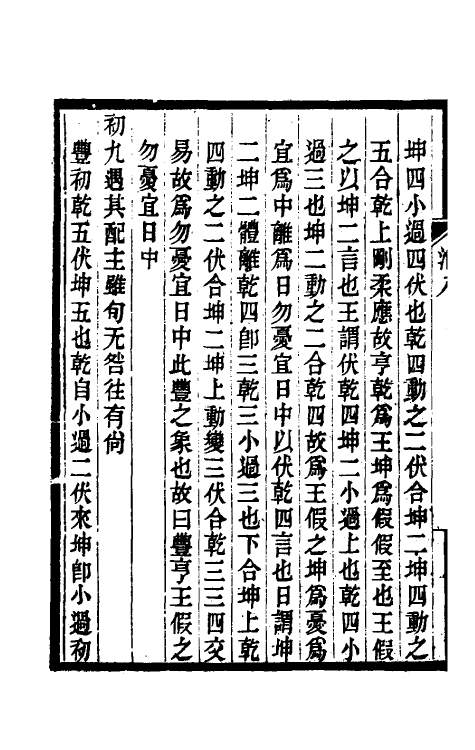 坤四小過四伏也乾四動之二伏合坤二坤四動之
五合乾上剛柔應故亨乾爲王坤爲假假至也王假
之以坤二言也王謂伏乾四坤二小過上也乾四小
過三也坤二動之二合乾四故爲王假之坤爲憂爲
宜爲中離爲日勿憂宜日中以伏乾四言也日謂坤
二坤二體離乾四卽三乾三小過三也下合坤上乾
四動之二伏合坤二坤上動變三伏合乾三三四交
易故爲勿憂宜日中此豐之象也故曰豐亨王假之
勿憂宜日中
初九遇其配主雖旬无咎往有尙
豐初乾五伏坤五也乾自小過二伏來坤卽小過初